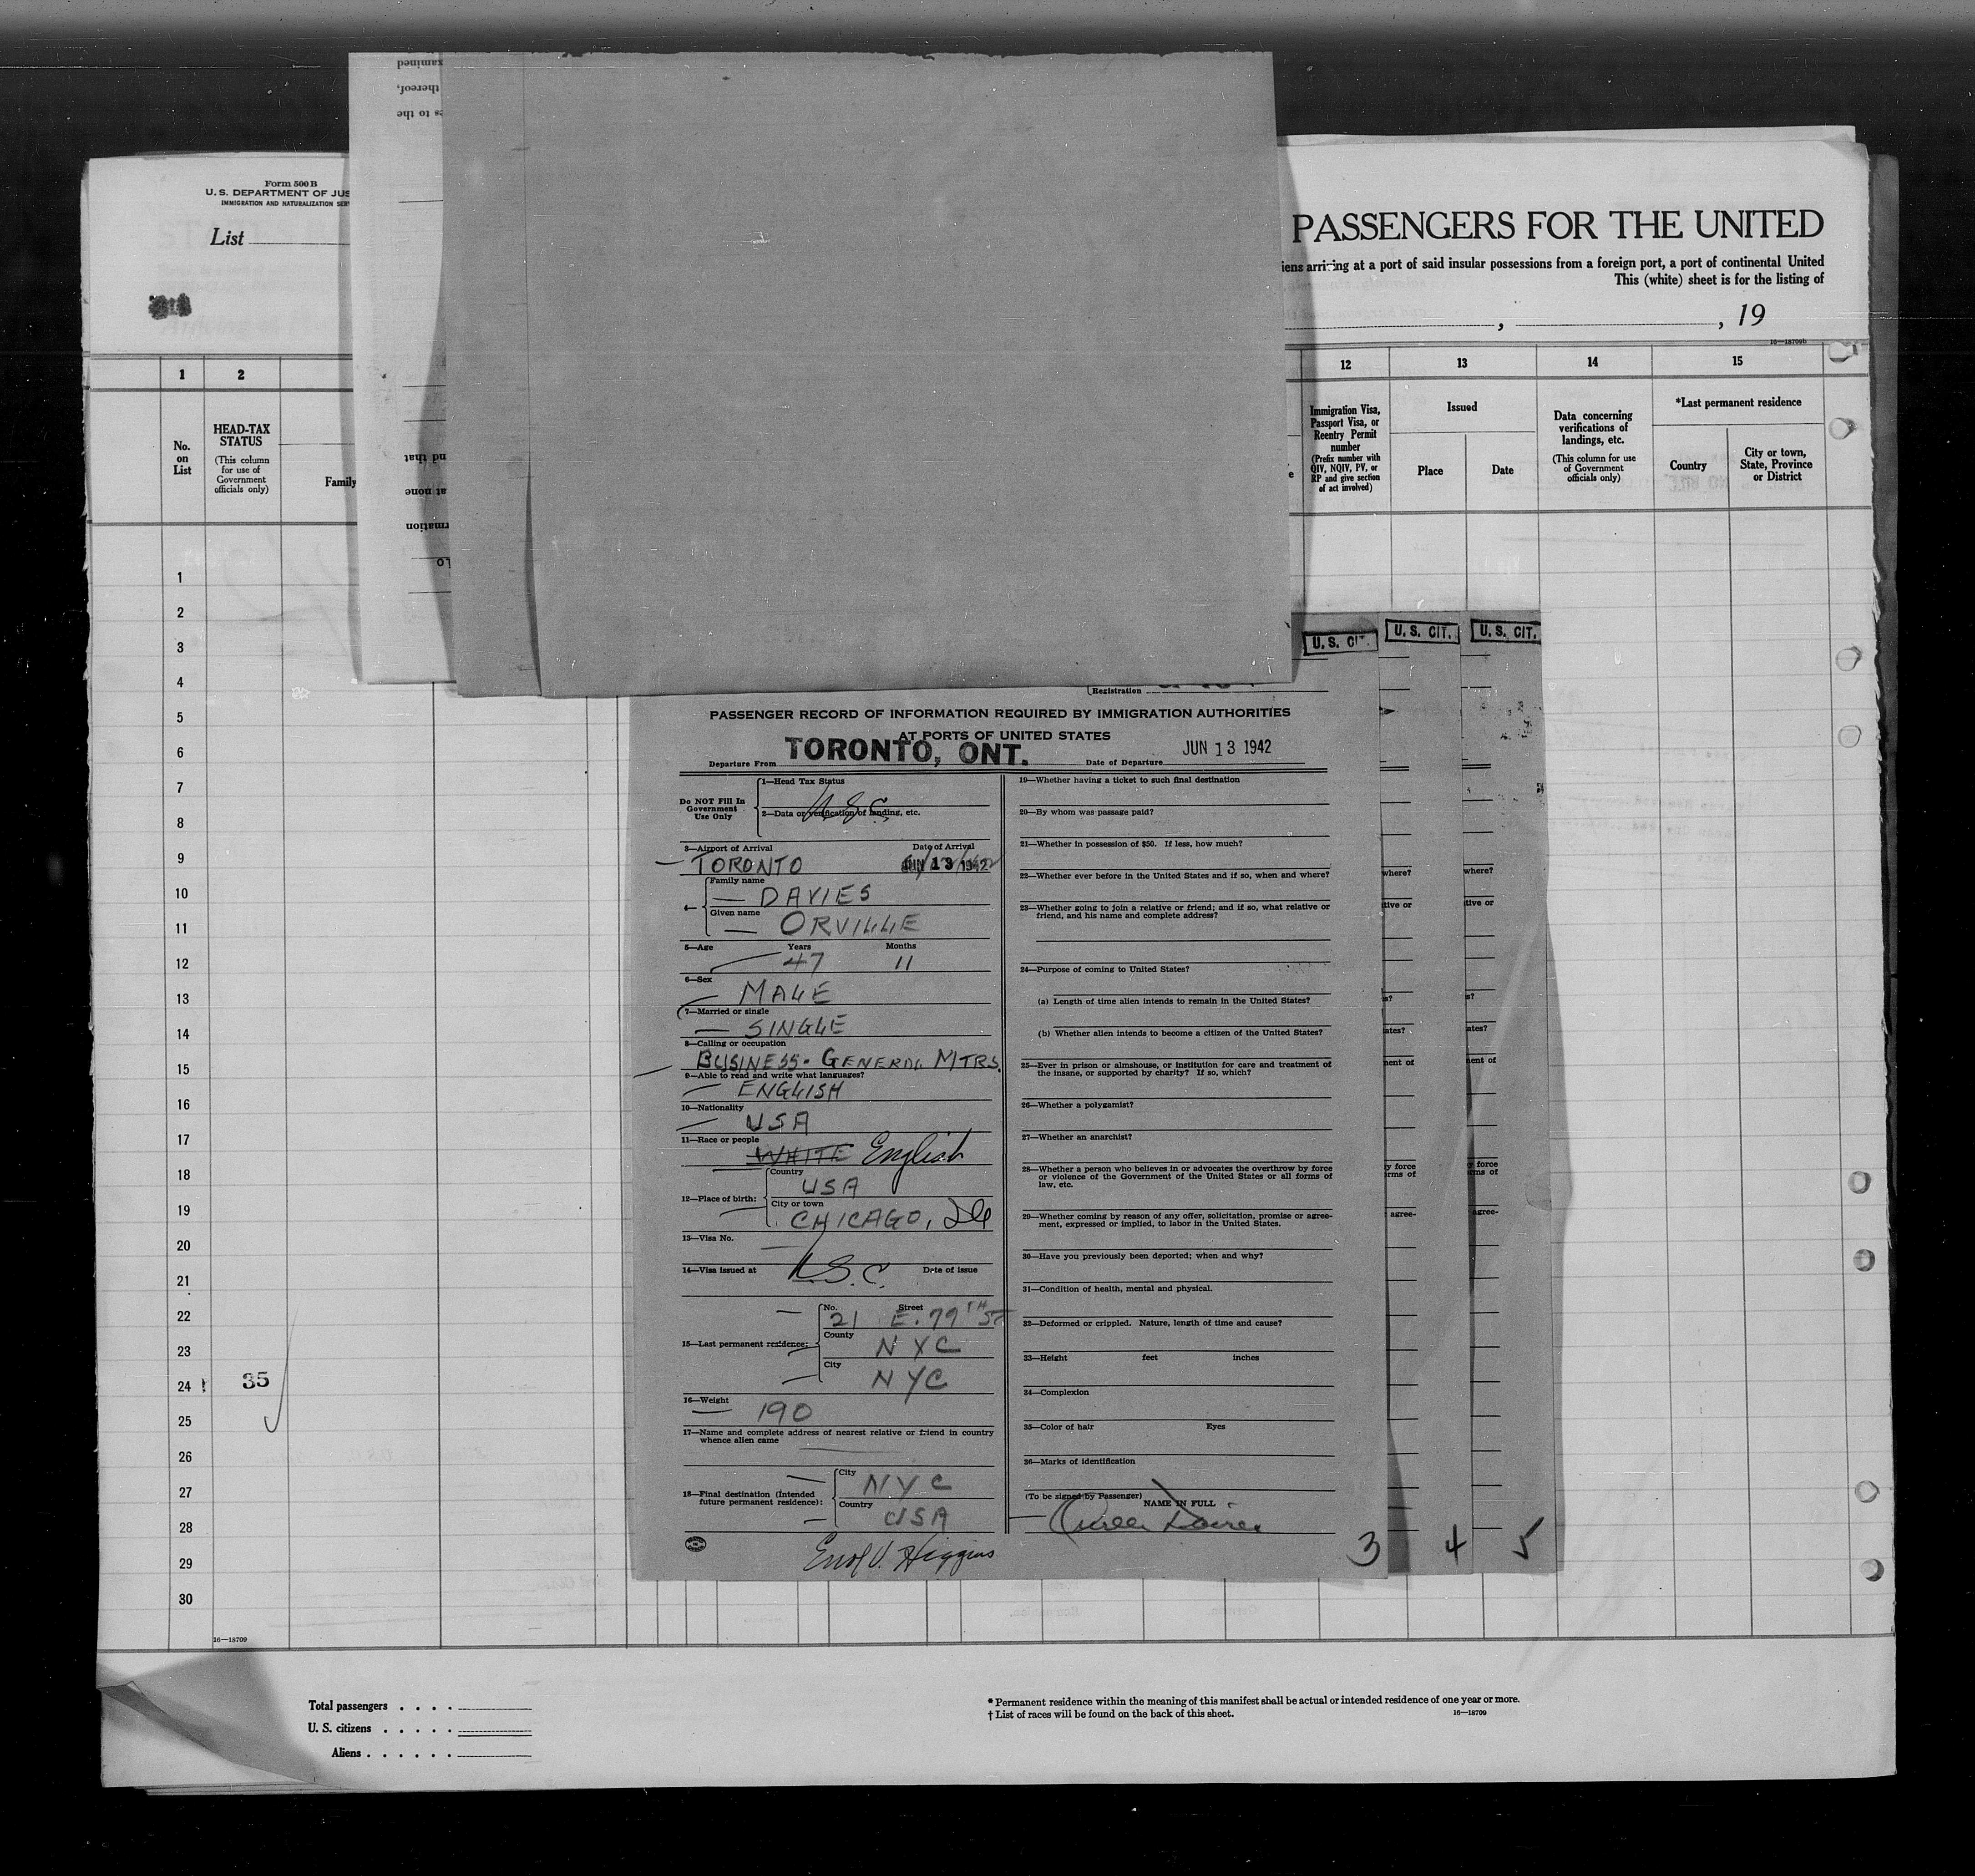 Form 500 B
U. S. DEPARTMENT OF JUS
IMMIGRATION AND NATURALIZATION SER
List
PASSENGERS FOR THE UNITED
iens arriving at a port of said insular possessions from a foreign port, a port of continental United
This (white) sheet is for the listing of
, , 19
16—18709b
1 2 12 13 14 15
No. on List
HEAD-TAX STATUS
(This column for use of Government officials only)
Family
Immigration Visa, Passport Visa, or Reentry Permit number
(Prefix number with QIV, NQIV, PV, or RP and give section of act involved)
Issued
Place
Date
Data concerning verifications of landings, etc.
(This column for use of Government officials only)
*Last permanent residence
Country
City or town, State, Province or District
xamined
thereof,
es to the
nd that
at none
rmation
1
2
3
4
5
6
7
8
9
10
11
12
13
14
15
16
17
18
19
20
21
22
23
24 35
25
26
27
28
29
30
16—18709
U. S. CIT.
U. S. CIT.
U. S. CIT.
Registration
PASSENGER RECORD OF INFORMATION REQUIRED BY IMMIGRATION AUTHORITIES
AT PORTS OF UNITED STATES
Departure From TORONTO, ONT. Date of Departure JUN 13 1942
Do NOT Fill In Government Use Only
1—Head Tax Status
U S C
2—Data or verification of landing, etc.
3—Airport of Arrival Date of Arrival
TORONTO JUN 13 1942
4—
Family name
DAVIES
Given name
ORVILLE
5—Age Years Months
47 11
6—Sex
MALE
7—Married or single
SINGLE
8—Calling or occupation
BUSINESS - GENERAL MTRS.
9—Able to read and write what languages?
ENGLISH
10—Nationality
USA
11—Race or people
WHITE English
12—Place of birth:
Country
USA
City or town
CHICAGO, Ill
13—Visa No.
14—Visa issued at Date of issue
U.S.C.
15—Last permanent residence:
No. Street
21 E. 79TH ST
County
NYC
City
NYC
16—Weight
190
17—Name and complete address of nearest relative or friend in country
whence alien came
18—Final destination (Intended
future permanent residence):
City
NYC
Country
USA
19—Whether having a ticket to such final destination
20—By whom was passage paid?
21—Whether in possession of $50. If less, how much?
22—Whether ever before in the United States and if so, when and where?
23—Whether going to join a relative or friend; and if so, what relative or
friend, and his name and complete address?
24—Purpose of coming to United States?
(a) Length of time alien intends to remain in the United States?
(b) Whether alien intends to become a citizen of the United States?
25—Ever in prison or almshouse, or institution for care and treatment of
the insane, or supported by charity? If so, which?
26—Whether a polygamist?
27—Whether an anarchist?
28—Whether a person who believes in or advocates the overthrow by force
or violence of the Government of the United States or all forms of
law, etc.
29—Whether coming by reason of any offer, solicitation, promise or agree-
ment, expressed or implied, to labor in the United States.
30—Have you previously been deported; when and why?
31—Condition of health, mental and physical.
32—Deformed or crippled. Nature, length of time and cause?
33—Height feet inches
34—Complexion
35—Color of hair Eyes
36—Marks of identification
(To be signed by Passenger)
NAME IN FULL
Orville Davies
3
4
5
where?
tive or
s?
ates?
ment of
y force
rms of
agree-
where?
tive or
s?
ates?
ment of
y force
rms of
agree-
Total passengers . . . .
U. S. citizens . . . . .
Aliens . . . . . .
* Permanent residence within the meaning of this manifest shall be actual or intended residence of one year or more.
† List of races will be found on the back of this sheet.
16—18709